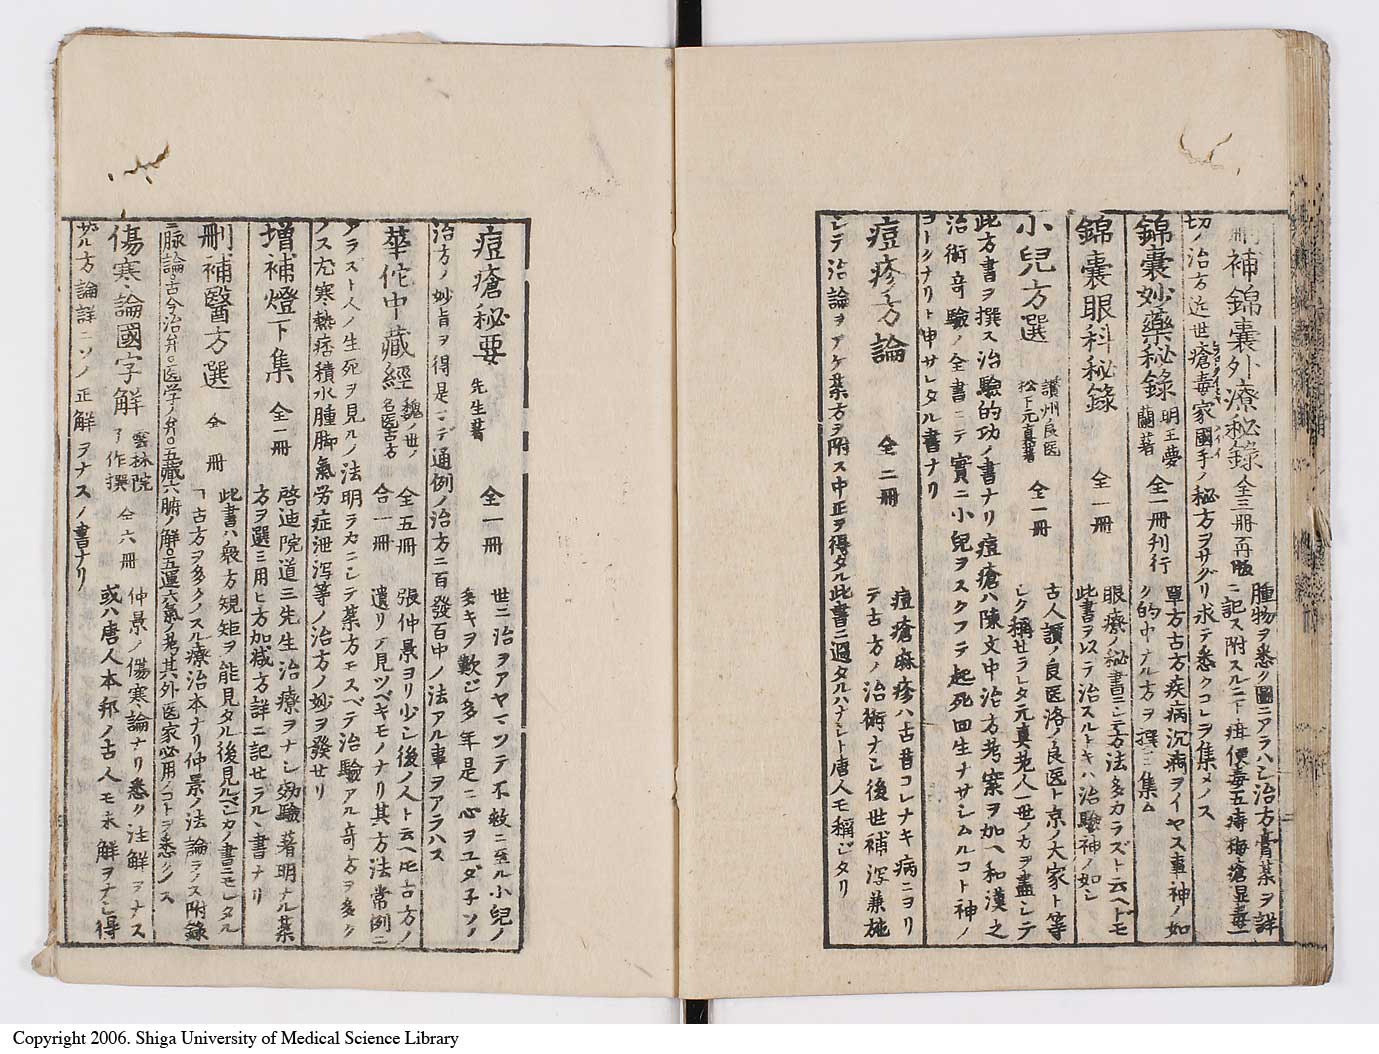 刪補錦囊外療秘錄 全三冊再版 腫物ヲ悉ク圖ニアラハシ治方膏薬ヲ詳
ニ記ス附スルニ下疳便毒五痔梅瘡湿毒一
切ノ治方近世瘡毒家國手ノ秘方ヲサグリ求テ悉クコレラ集メノス
錦囊妙藥秘錄 明王夢蘭著 全一冊刊行 單方古方疾病沉痾ヲイヤス事神ノ如
ク的中ナル方ヲ撰ミ集ム
錦囊眼科秘錄 全一冊 眼療ノ秘書ニシテ方法多カラズト云ヘドモ
此書ヲ以テ治スルトキハ治驗神ノ如シ
小兒方選 讃州良医 松下元真著 全一冊 古人讃ノ良医洛ノ良医ト京ノ大家ト等
シク稱セラレタ元真老人一世ノ力ヲ盡シテ
此方書ヲ撰ス治驗的功ノ書ナリ痘瘡ハ陳文中治方考案ヲ加ヘ和漢之
治術奇驗ノ全書ニテ實ニ小兒ヲスクフテ起死回生ナサシムルコト神ノ
ヲトクナリト申サレタル書ナリ
痘疹方論 全二冊 痘瘡麻疹ハ古昔コレナキ病ニヨリ
テ古方ノ治術ナシ後世補瀉兼施
シテ治論ヲアゲ薬方ヲ附ス中正ヲ得タル此書ニ過タルハナシト唐人モ稱ジタリ
痘瘡秘要 先生著 全一冊 世ニ治ヲアヤマツテ不救ニ至ル小兒ノ
多キヲ歎ジ多年是ニ心ヲユダ子ソノ
治方ノ妙旨ヲ得是マデ通例ノ治方ニ百發百中ノ法アル事ヲアラハス
華佗中藏經 魏ノ世ノ名医古方 全五冊合一冊 張仲景ヨリ少シ後ノ人ト云ヘ𪜈古方ノ
遺リテ見ツベキモノナリ其方法常例ニ
アラスト人ノ生死ヲ見ルノ法明ラカニシテ薬方モスベテ治驗アル奇方ヲ多ク
ノス尤寒熱痞積水腫脚氣労症泄瀉等ノ治方ノ妙ヲ發セリ
增補燈下集 全一冊 啓迪院道三先生治療ヲナシ効驗著明ナル薬
方ヲ選ミ用ヒ方加減方詳ニ記セラルヽ書ナリ
刪補醫方選 全 冊 此書ハ衆方規矩ヲ能見タル後見ルベシカノ書ニモレタル
古方ヲ多クノスル療治本ナリ仲景ノ法論ヲノス附錄
ニ脉論○古今治弁○医学ノ弁○五藏六腑ノ解○五運六氣ノ考其外医家必用ノコトヲ悉クノス
傷寒論國字解 雲林院了作撰 全六冊 仲景ノ傷寒論ナリ悉ク注解ヲナス
或ハ唐人本邦ノ古人モ未解ヲナシ得
ザル方論詳ニソノ正解ヲナスノ書ナリ
Copyright 2006. Shiga University of Medical Science Library